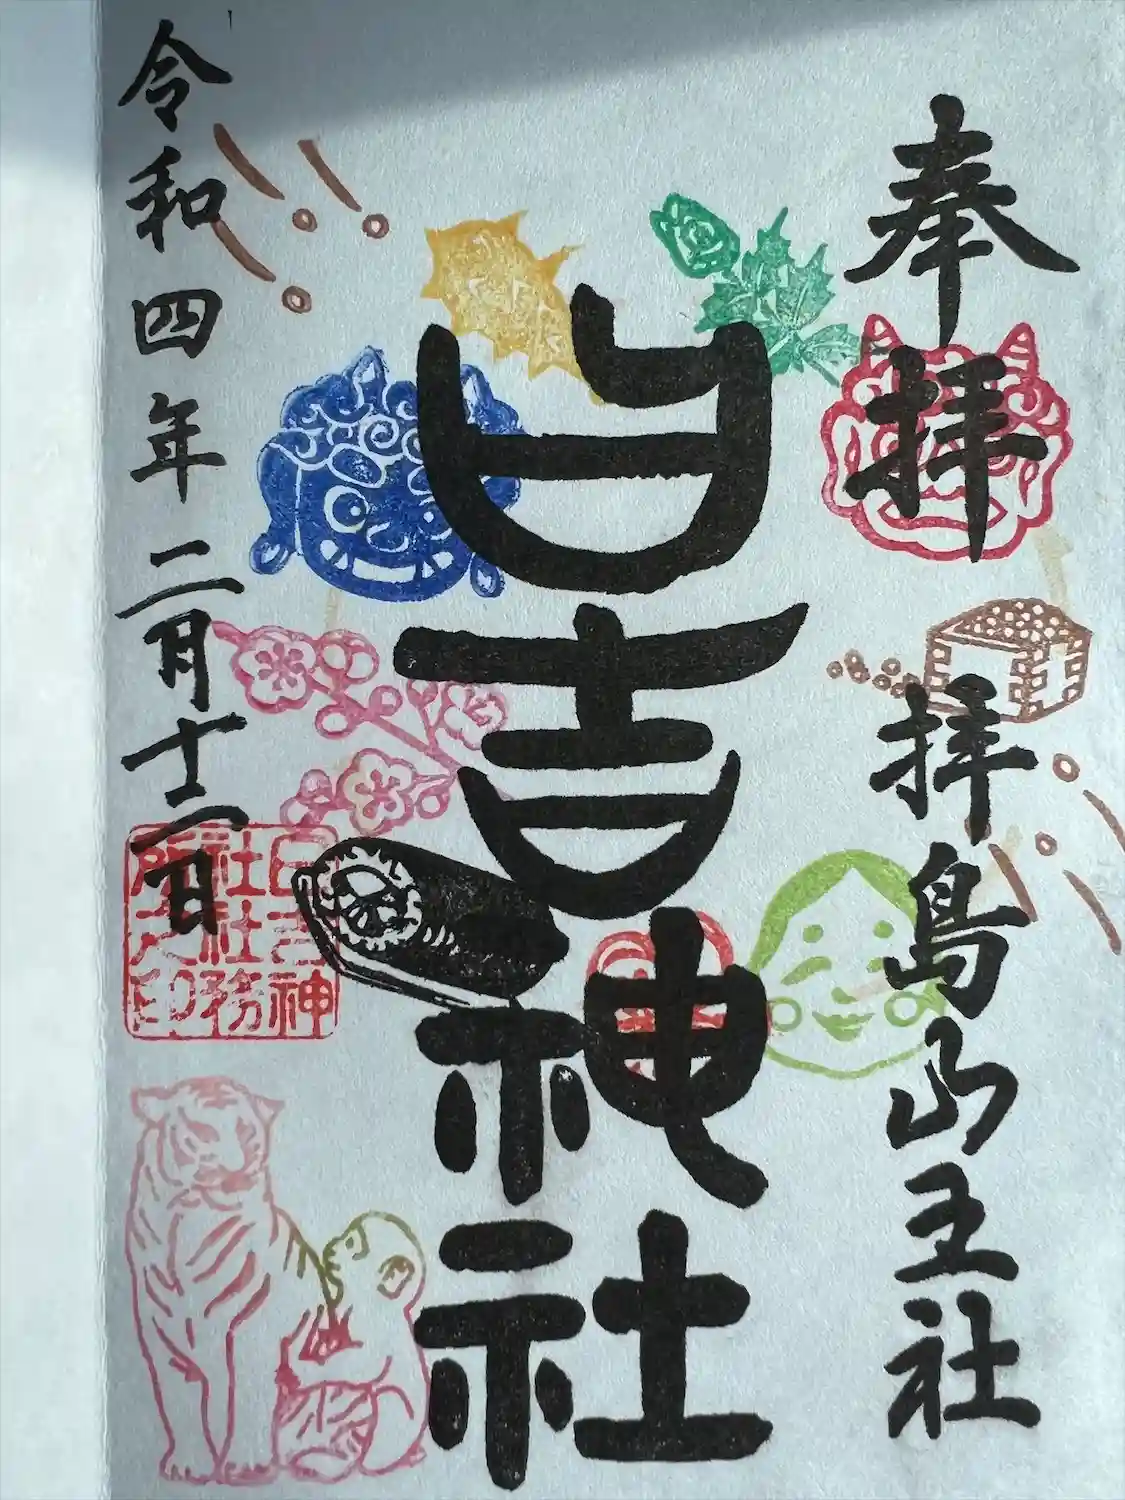 奉拝
拝島山王社
日吉神社
令和四年二月十二日
日吉神
社社務
所之印